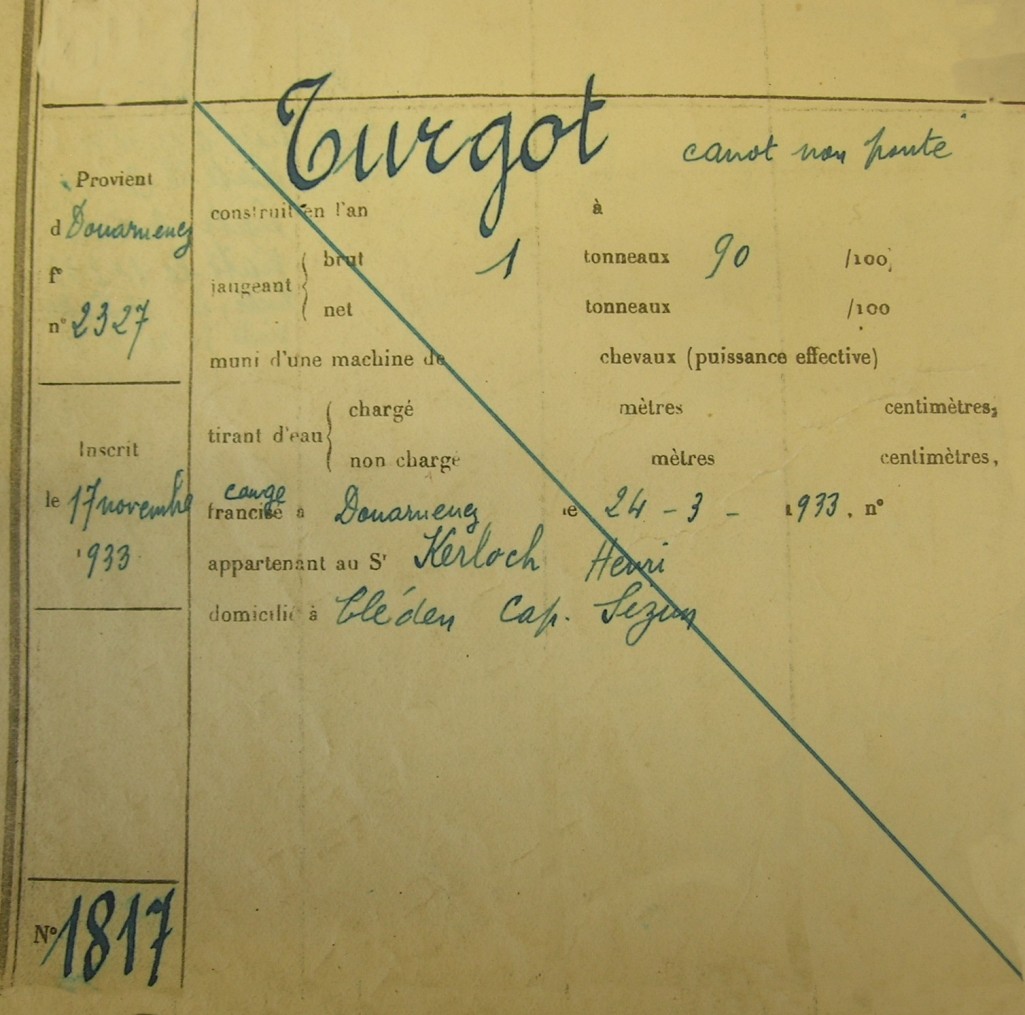 Turgot canot non ponté
Provient
d Douarnenez
f°
n° 2327
Inscrit
le 17 novembre
1933
N° 1817
construit en l'an à
jaugeant
brut 1 tonneaux 90 /100,
net tonneaux /100
muni d'une machine de chevaux (puissance effective)
tirant d'eau
chargé mètres centimètres,
non chargé mètres centimètres,
congé
francisé à Douarnenez le 24 - 3 - 1933, n°
appartenant au Sr Kerloch Henri
domicilié à Cléden Cap. Sizun